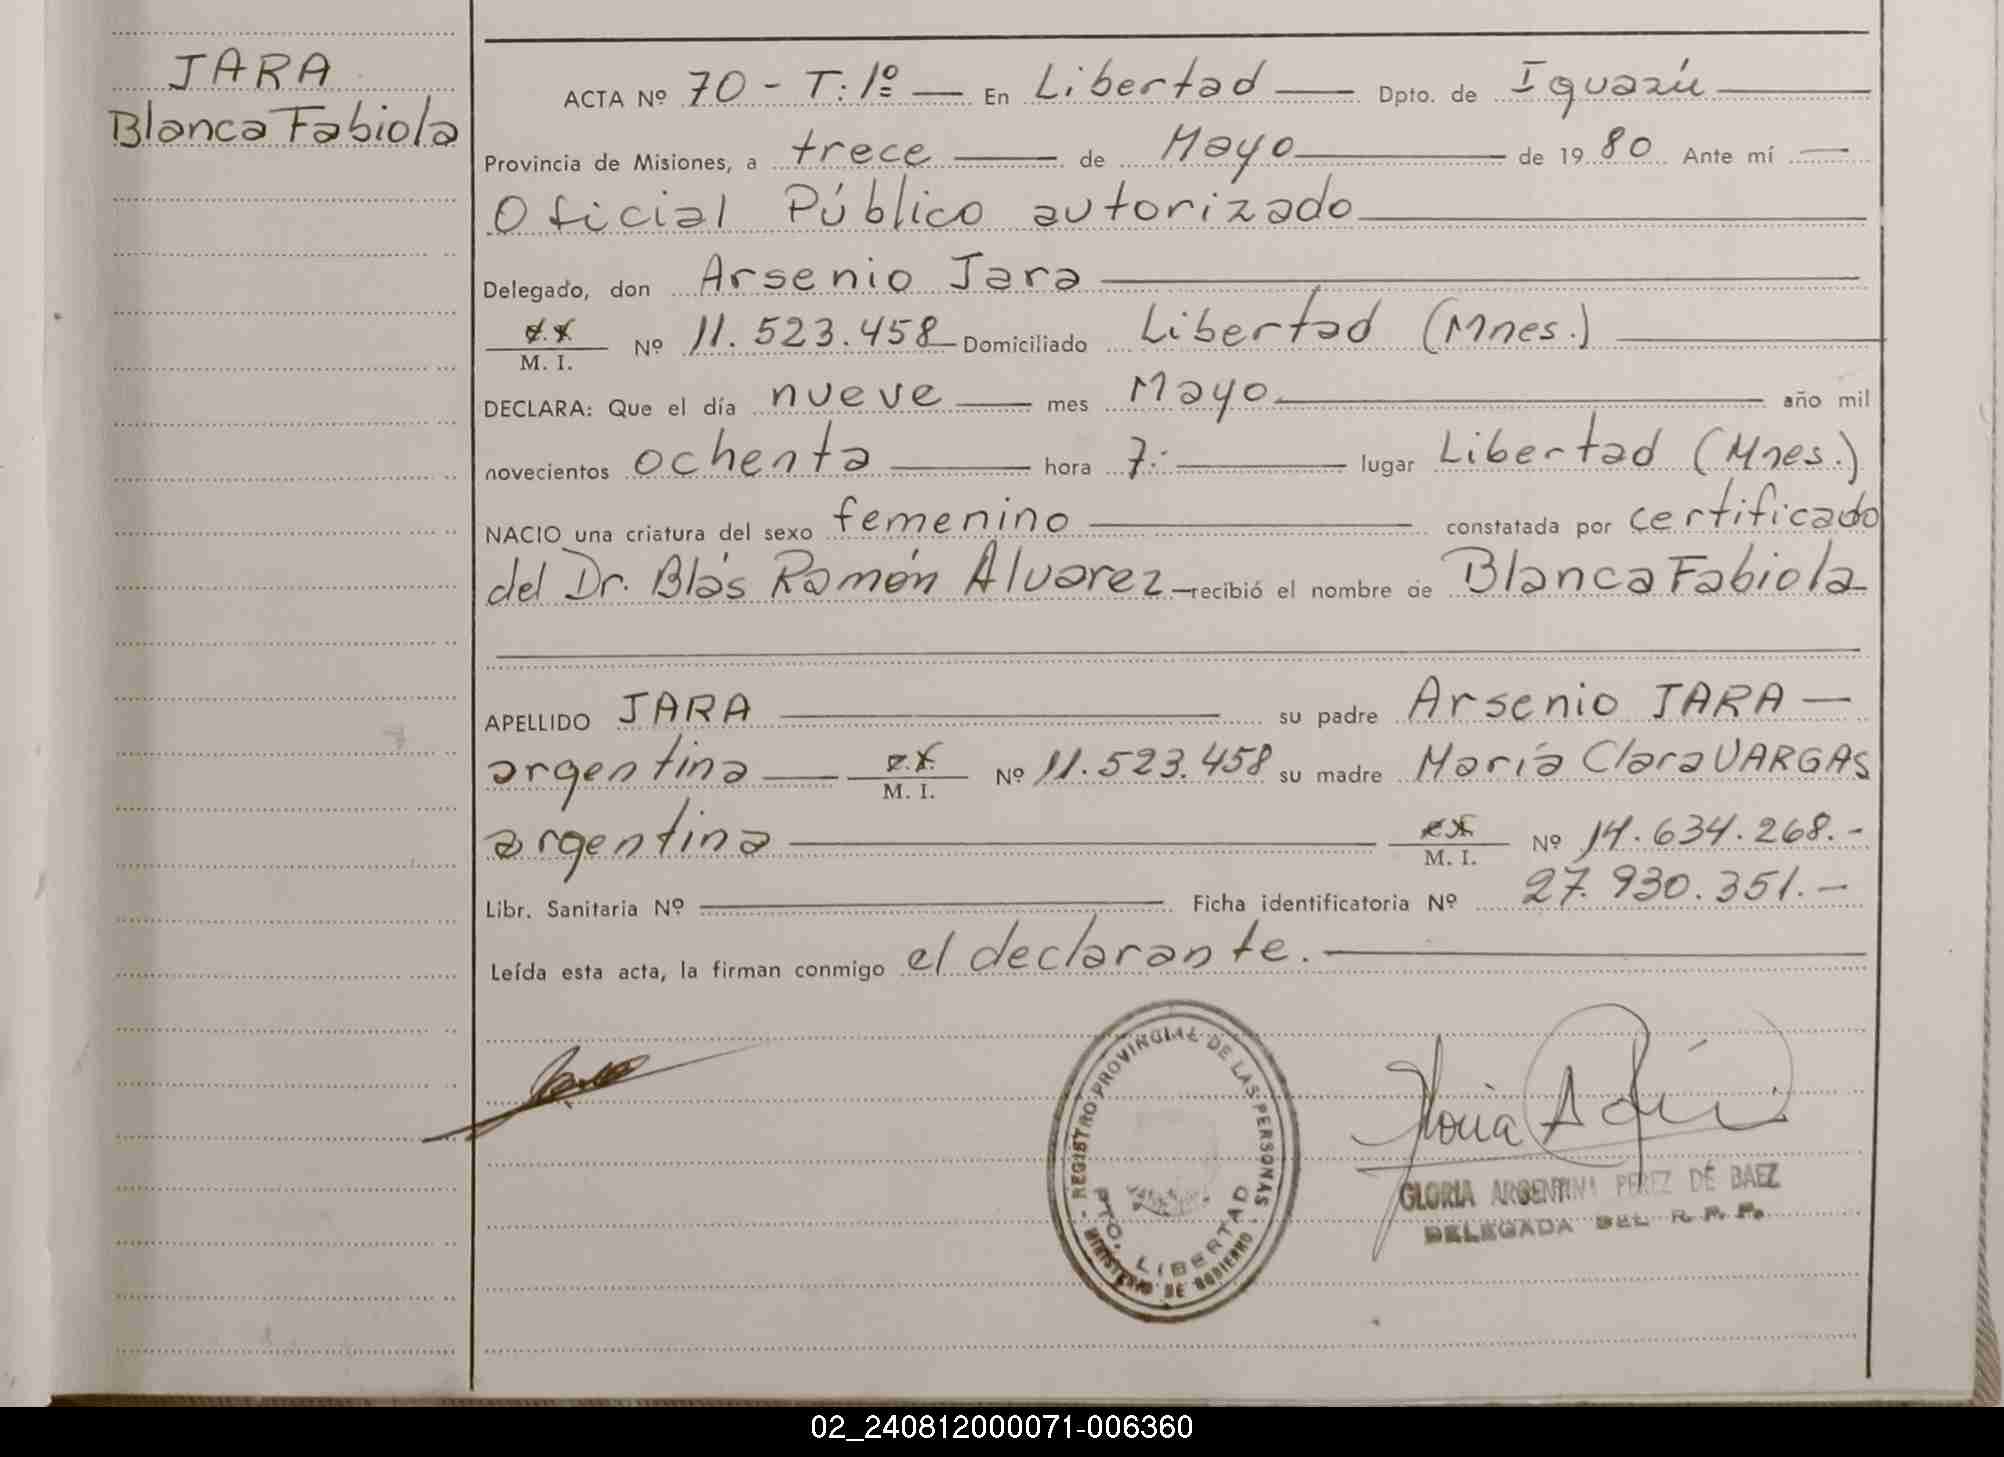 JARA
Blanca Fabiola
ACTA Nº 70 - T: 1º — En Libertad — Dpto. de Iguazú —
Provincia de Misiones, a trece — de Mayo — de 1980 Ante mí —
Oficial Público autorizado —
Delegado, don Arsenio Jara —
M. I. Nº 11.523.458 — Domiciliado Libertad (Mnes.) —
DECLARA: Que el día nueve — mes Mayo — año mil
novecientos ochenta — hora 7: — lugar Libertad (Mnes.)
NACIO una criatura del sexo femenino — constatada por certificado
del Dr. Blás Ramón Alvarez — recibió el nombre de Blanca Fabiola
APELLIDO JARA — su padre Arsenio JARA —
argentina — M. I. Nº 11.523.458 su madre María Clara VARGAS
argentina — M. I. Nº 14.634.268.-
Libr. Sanitaria Nº — Ficha identificatoria Nº 27.930.351.-
Leída esta acta, la firman conmigo el declarante. —
- REGISTRO PROVINCIAL DE LAS PERSONAS -
MINISTERIO DE GOBIERNO
PTO. LIBERTAD
GLORIA ARGENTINA PEREZ DE BAEZ
DELEGADA DEL R. P. P.
02_240812000071-006360